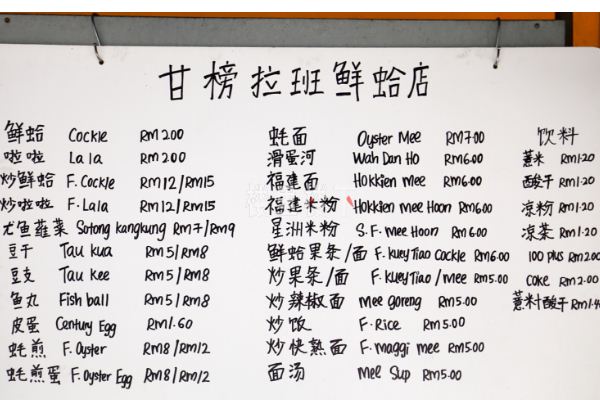 甘榜拉班鲜蛤店
鲜蛤 Cockle RM200
啦啦 Lala RM200
炒鲜蛤 F.Cockle RM12/RM15
炒啦啦 F.Lala RM12/RM15
尤鱼蕹菜 Sotong kangkung RM7/RM9
豆干 Tau kua RM5/RM8
豆支 Tau kee RM5/RM8
鱼丸 Fish ball RM5/RM8
皮蛋 Century Egg RM1.60
蚝煎 F.Oyster RM8/RM12
蚝煎蛋 F.Oyster Egg RM8/RM12
蚝面 Oyster Mee RM7.00
滑蛋河 Wah Dan Ho RM6.00
福建面 Hokkien mee RM6.00
福建米粉 Hokkien mee Hoon RM6.00
星洲米粉 S.F. mee Hoon RM6.00
鲜蛤果条/面 F.kueyTiao Cockle RM6.00
炒果条/面 F.kueyTiao/mee RM5.00
炒辣椒面 mee goreng RM5.00
炒饭 F.Rice RM5.00
炒快熟面 F.maggi mee RM5.00
面汤 Mee Sup RM5.00
饮料
薏米 RM1.20
酸干 RM1.20
凉粉 RM1.20
凉茶 RM1.20
100 plus RM2.00
coke RM2.00
薏米酸干 RM1.4